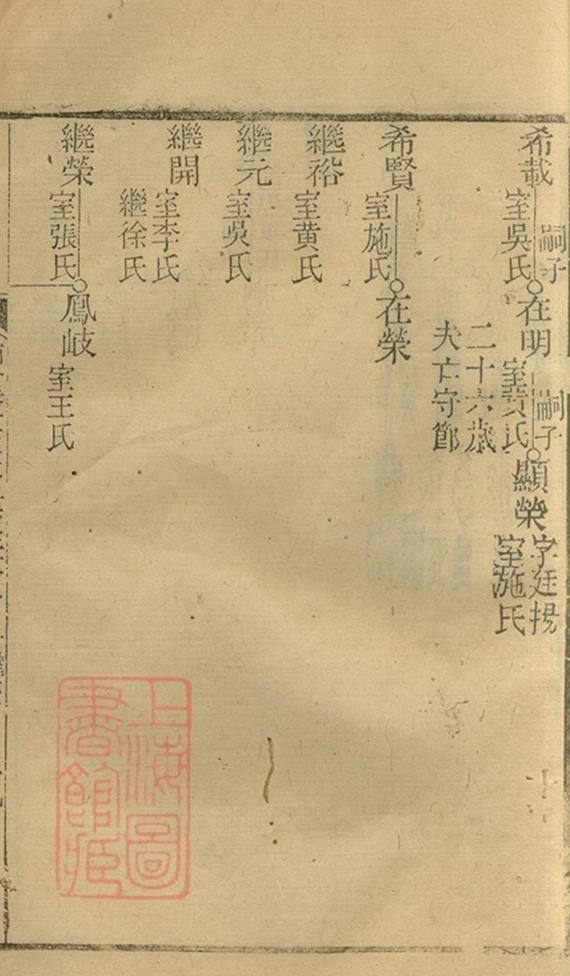 希載
室吳氏
嗣子
在明
室黃氏
二十六歲
夫亡守節
嗣子
顯榮
字廷揚
室施氏
希賢
室施氏
在榮
繼裕
室黃氏
繼元
室吳氏
繼開
室李氏
繼徐氏
繼榮
室張氏
鳳岐
室王氏
上海圖
書館藏